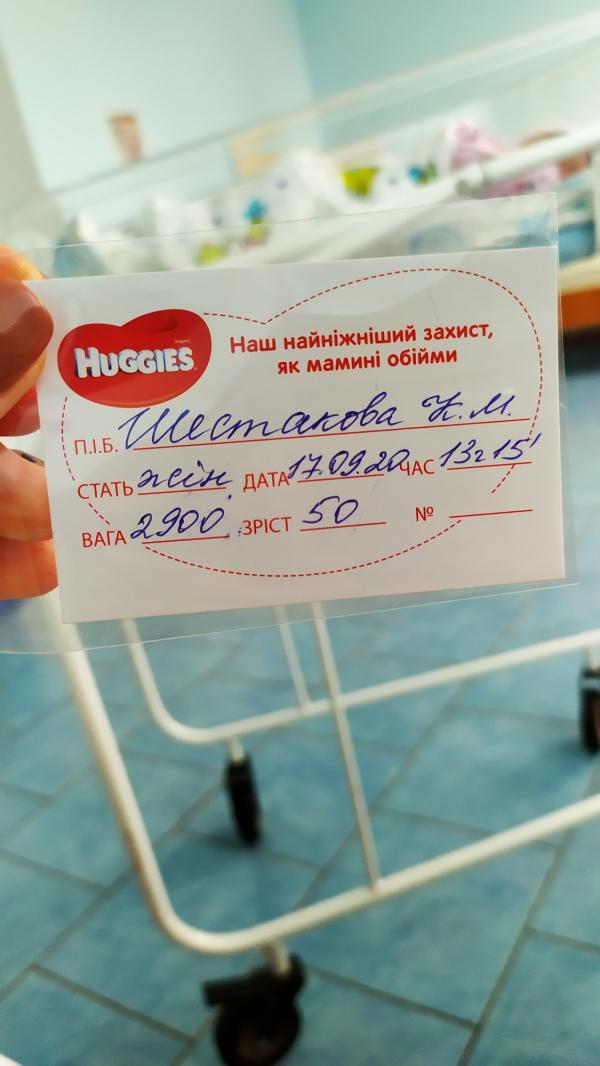 HUGGIES
Наш найніжніший захист,
як мамині обійми
П.І.Б. Шестакова Н.М.
СТАТЬ жін. ДАТА 17.09.20 ЧАС 13г15'
ВАГА 2900 ЗРІСТ 50 №